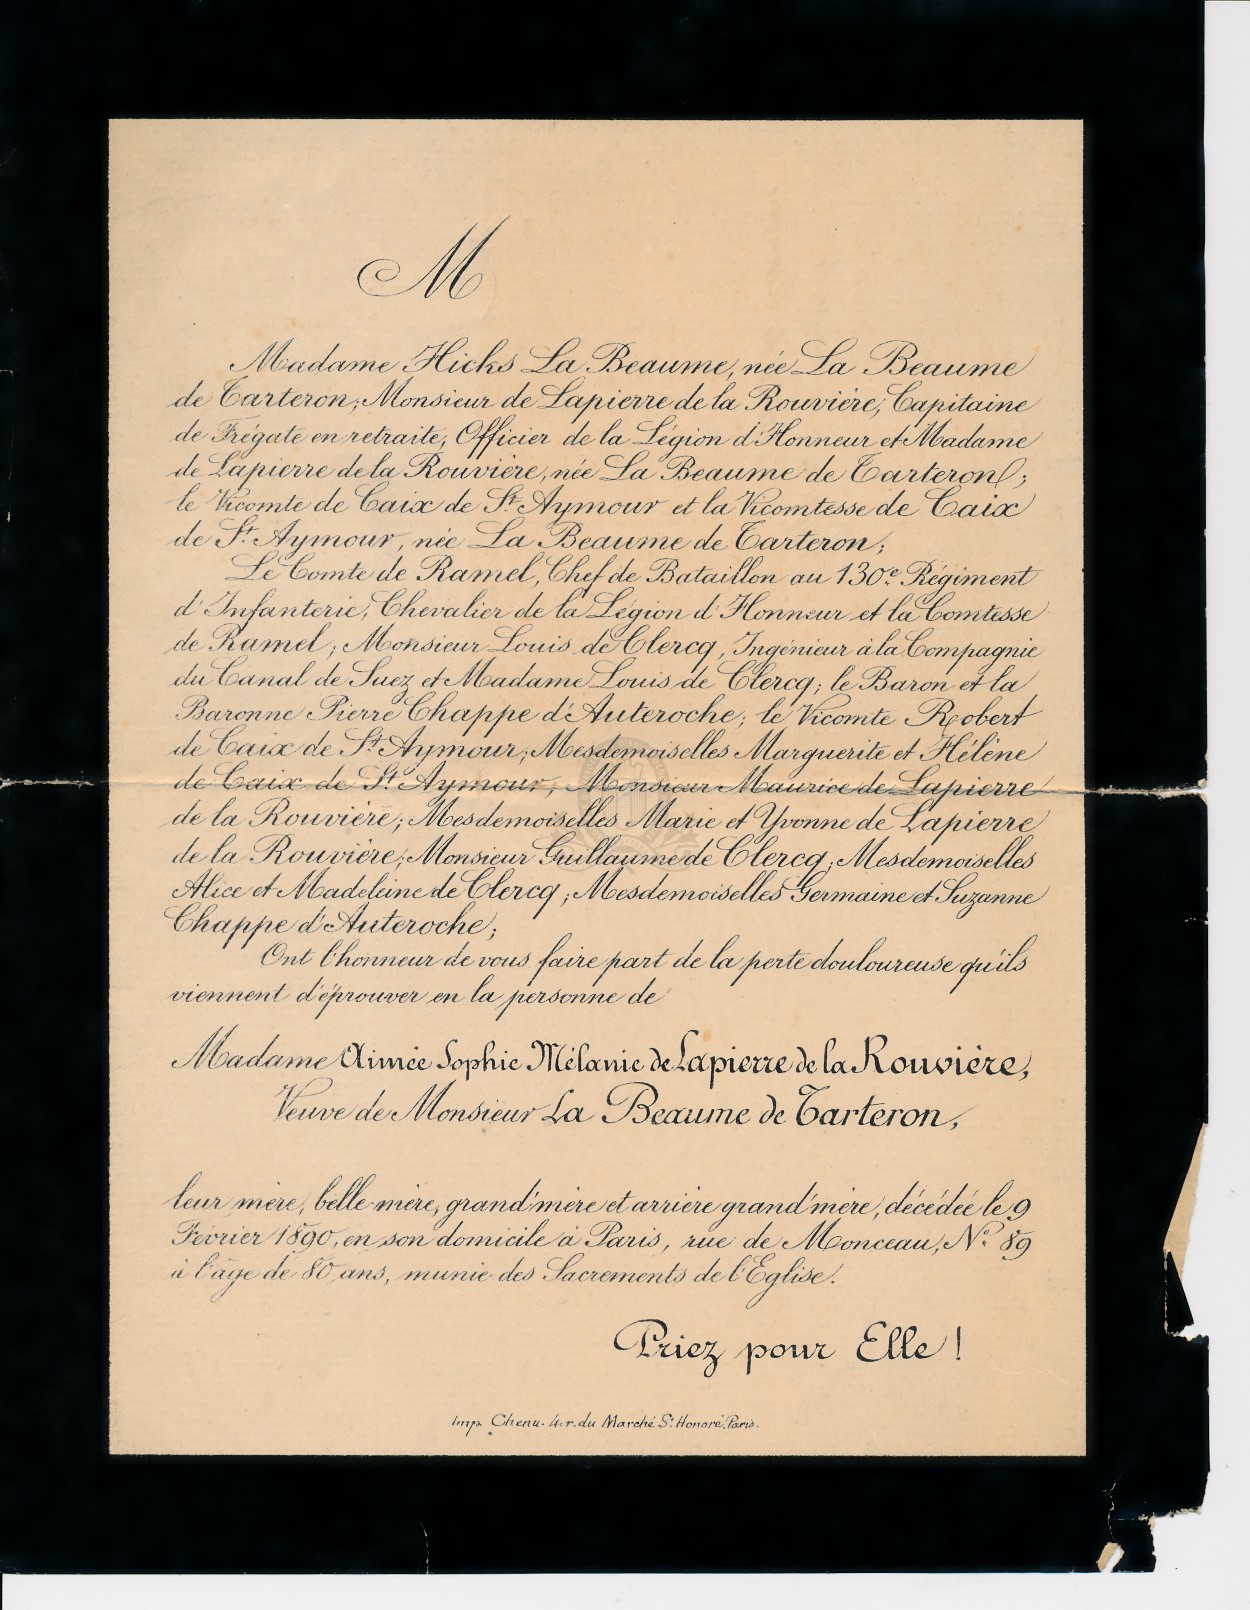 M
Madame Hicks La Beaume, née La Beaume
de Tarteron; Monsieur de Lapierre de la Rouvière, Capitaine
de Frégate en retraite, Officier de la Légion d'Honneur et Madame
de Lapierre de la Rouvière, née La Beaume de Tarteron;
le Vicomte de Caix de St. Aymour et la Vicomtesse de Caix
de St. Aymour, née La Beaume de Tarteron;
Le Comte de Ramel, Chef de Bataillon au 130e. Régiment
d'Infanterie, Chevalier de la Légion d'Honneur et la Comtesse
de Ramel; Monsieur Louis de Clercq, Ingénieur à la Compagnie
du Canal de Suez et Madame Louis de Clercq; le Baron et la
Baronne Pierre Chappe d'Auteroche; le Vicomte Robert
de Caix de St. Aymour; Mesdemoiselles Marguerite et Hélène
de Caix de St. Aymour; Monsieur Maurice de Lapierre
de la Rouvière; Mesdemoiselles Marie et Yvonne de Lapierre
de la Rouvière; Monsieur Guillaume de Clercq; Mesdemoiselles
Alice et Madeleine de Clercq; Mesdemoiselles Germaine et Suzanne
Chappe d'Auteroche;
Ont l'honneur de vous faire part de la perte douloureuse qu'ils
viennent d'éprouver en la personne de
Madame Aimée Sophie Mélanie de Lapierre de la Rouvière,
Veuve de Monsieur La Beaume de Tarteron,
leur mère, belle-mère, grand'mère et arrière grand'mère, décédée le 9
Février 1890, en son domicile à Paris, rue de Monceau, No. 89
à l'âge de 80 ans, munie des Sacrements de l'Eglise.
Priez pour Elle!
Imp. Chenu. 4. r. du Marché St. Honoré. Paris.